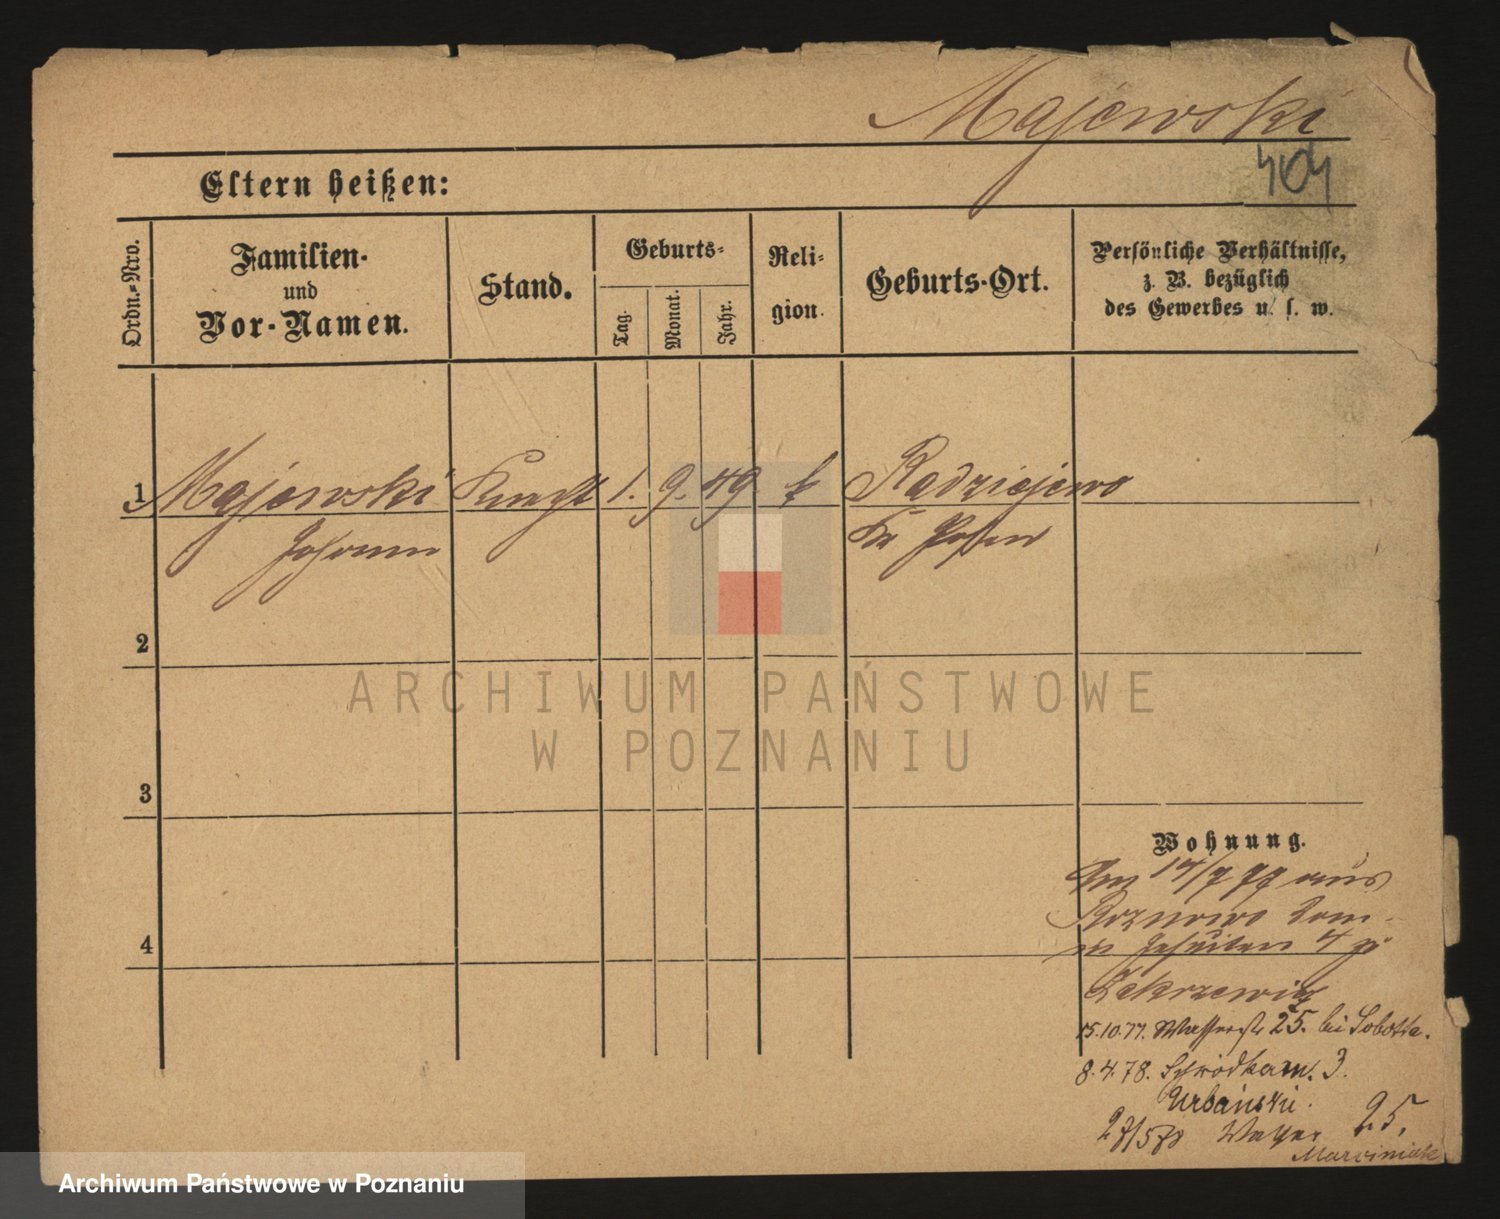 Majewski
404
Eltern heißen:
Ordn.-Nro.
Familien- und Vor-Namen.
Stand.
Geburts-
Tag.
Monat.
Jahr.
Religion.
Geburts-Ort.
Persönliche Verhältnisse,
z. B. bezüglich
des Gewerbes u. s. w.
1 Majewski Knecht 1. 9. 49 k Radziejewo
Johann Kr Posen
2
ARCHIWUM PAŃSTWOWE
W POZNANIU
3
Wohnung.
Am 14/7 77 aus
4
Jesuiten 4 zu
Zakrzewicz
15.10.77. Wasserstr 25. bei Sobotta.
8.4.78. Schrodkam. 3.
Urbański.
27/5 78 Wasser 25.
Marciniak
Archiwum Państwowe w Poznaniu